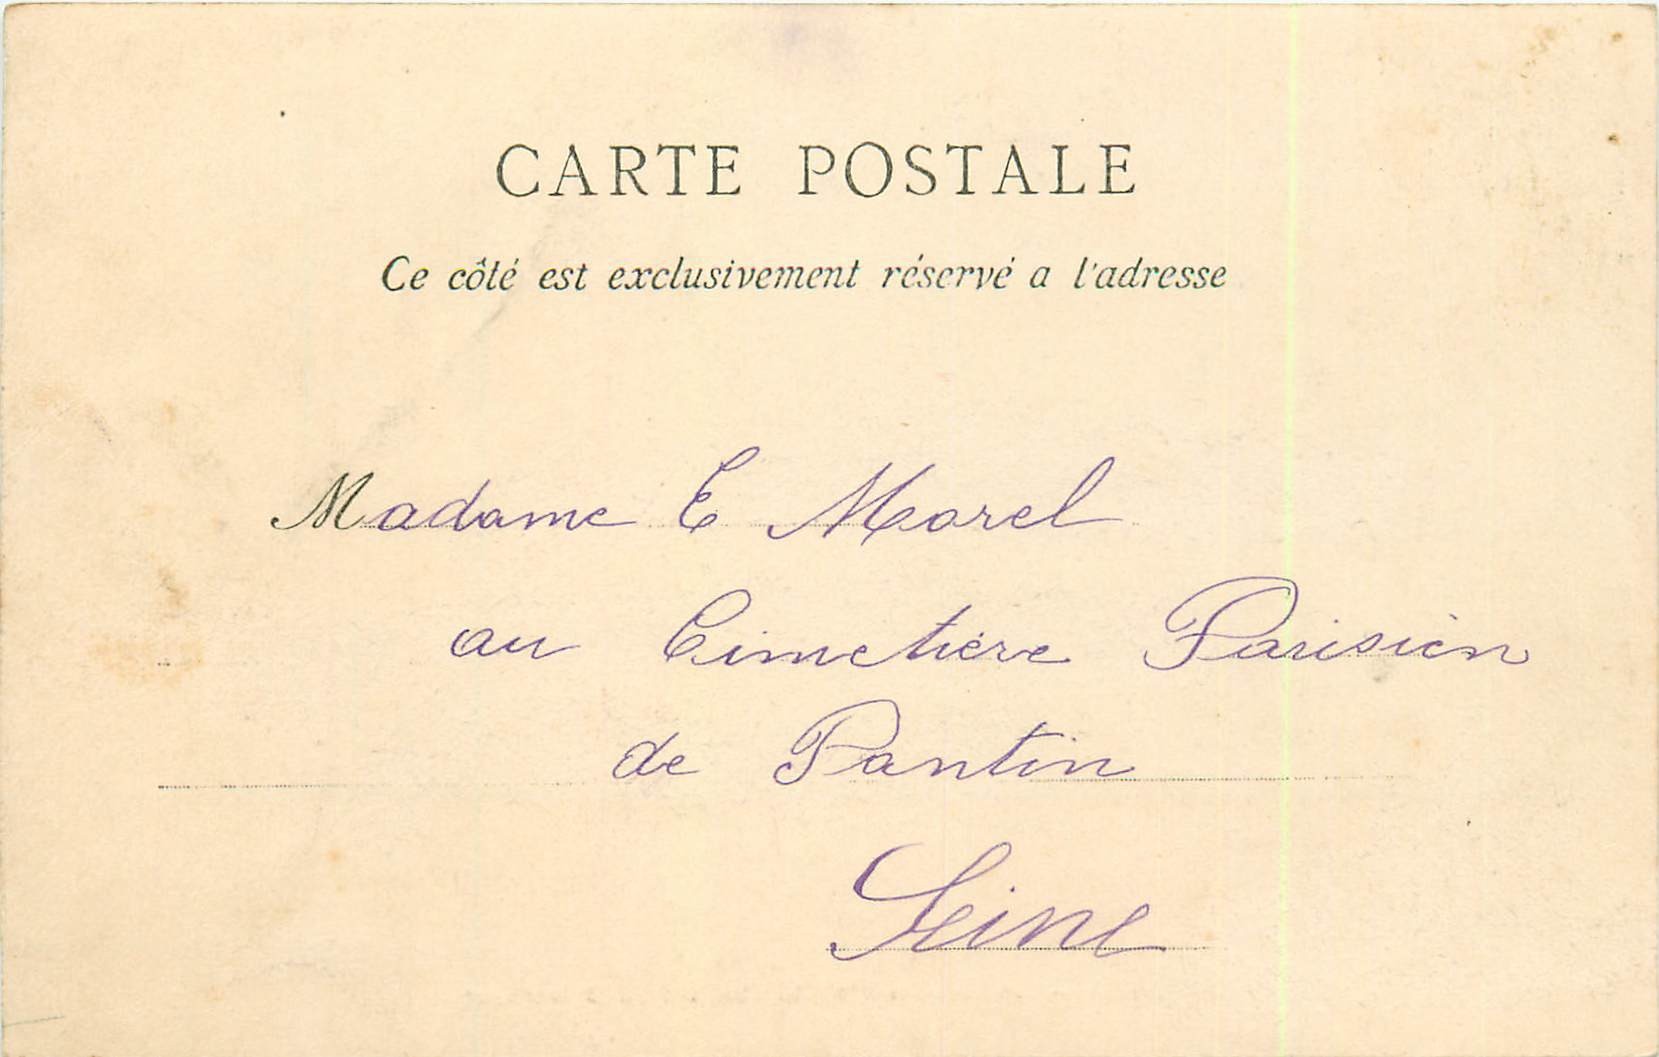 CARTE POSTALE
Ce côté est exclusivement réservé a l'adresse
Madame E Morel
au Cimetière Parisien
de Pantin
Seine